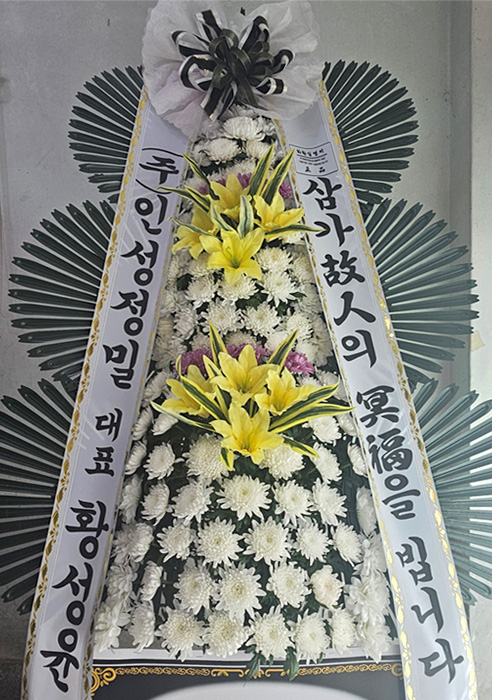 (주)인성정밀 대표 황성윤
삼가 故人의 冥福을 빕니다